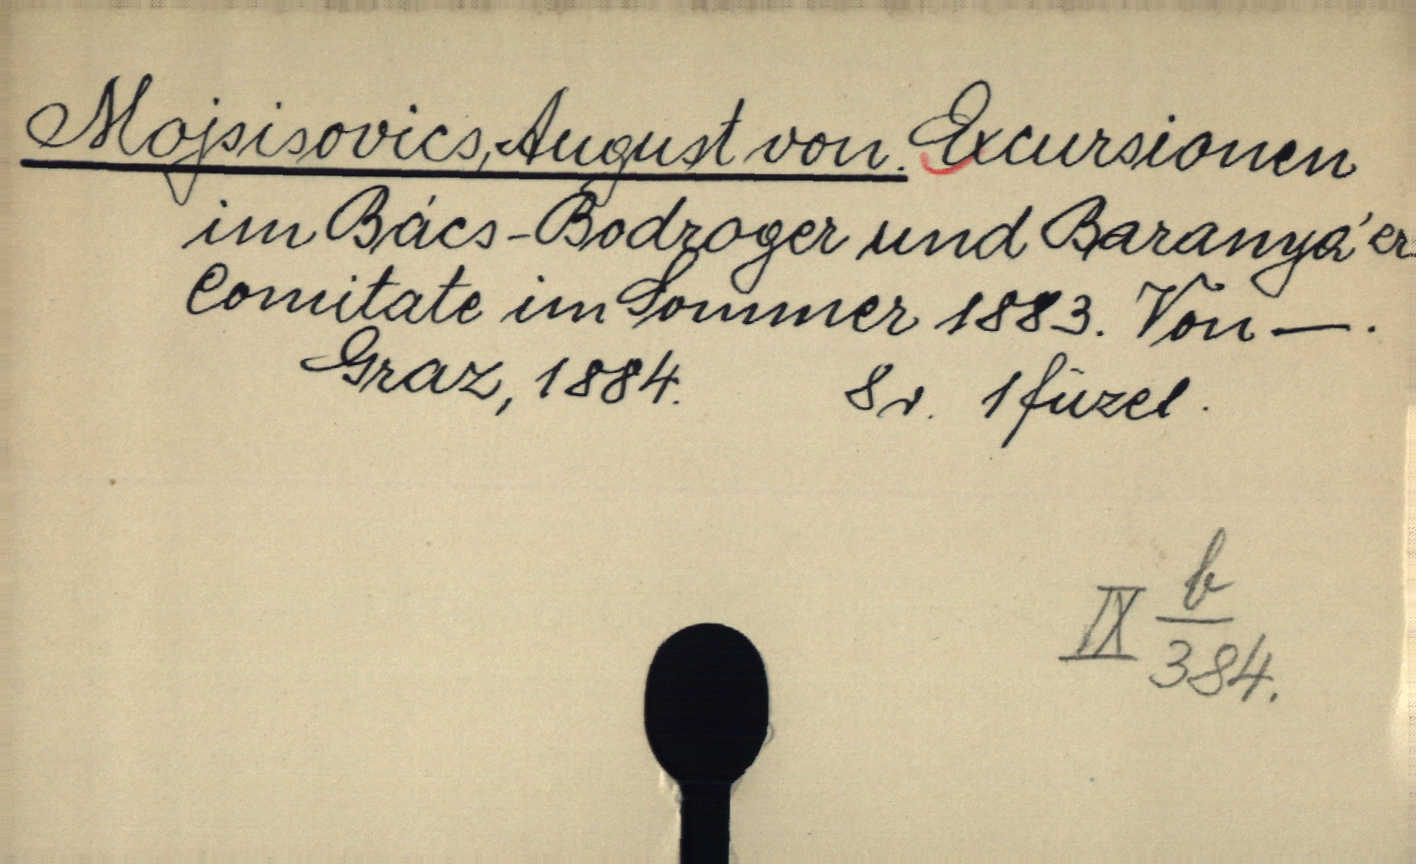 Mojsisovics, August von. Excursionen
im Bács-Bodroger und Baranya'er
Comitate im Sommer 1883. Von —.
Graz, 1884. 8r. 1 füzet.
IX b/384.